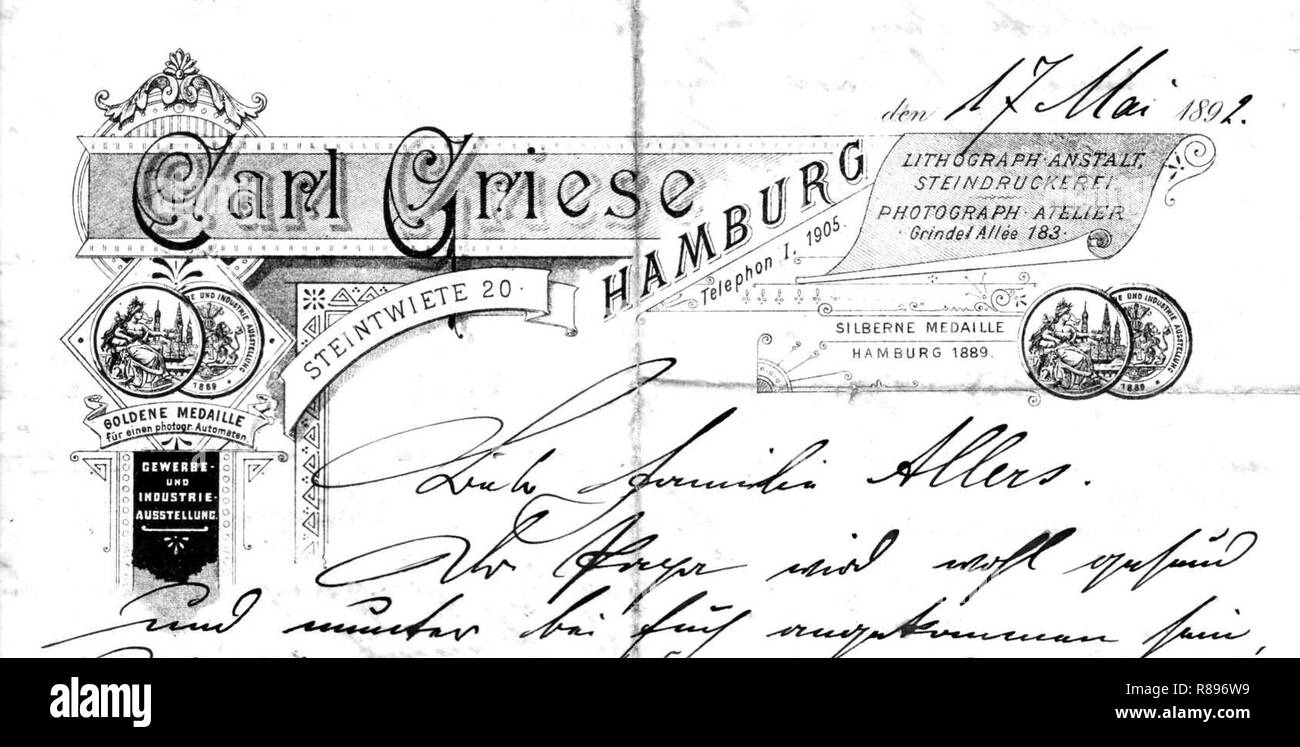 den 17 Mai 1892.
Carl Griese
HAMBURG
Telephon I. 1905.
LITHOGRAPH·ANSTALT,
STEINDRUCKEREI.
PHOTOGRAPH·ATELIER
Grindel Allée 183·
STEINTWIETE 20·
E UND INDUSTRIE AUSSTELLUNG
1889
GOLDENE MEDAILLE
für einen photogr. Automaten.
GEWERBE-
UND
INDUSTRIE-
AUSSTELLUNG.
SILBERNE MEDAILLE
HAMBURG 1889.
E UND INDUSTRIE AUSSTELLUNG
1889
Liebe Familie Allers.
Papa wird wohl gesund
und munter bei Euch angekommen sein,
alamy
Image ID: R896W9
www.alamy.com